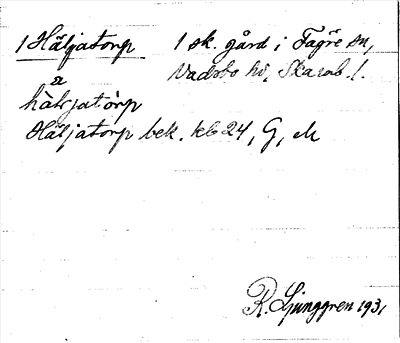 1 Häljatorp 1 sk. gård i Fagre sn,
Vadsbo hd, Skarab. l.
a
hàljatòrp
Häljatorp bek. kb 24, G, M
R. Ljunggren 1931